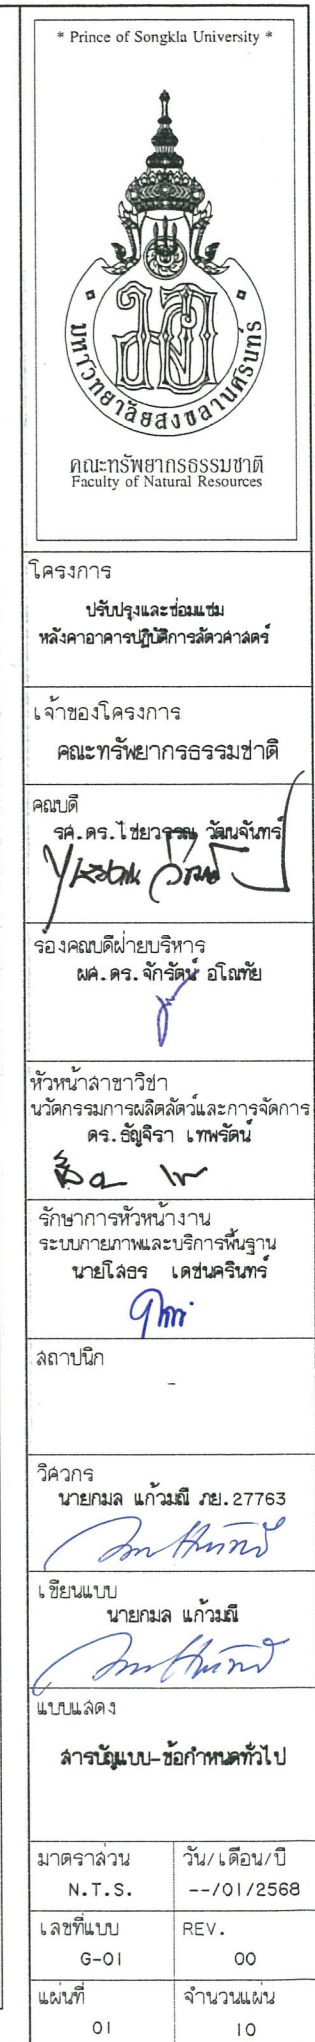 * Prince of Songkla University *
มหาวิทยาลัยสงขลานครินทร์
คณะทรัพยากรธรรมชาติ
Faculty of Natural Resources
โครงการ
ปรับปรุงและซ่อมแซม
หลังคาอาคารปฏิบัติการสัตวศาสตร์
เจ้าของโครงการ
คณะทรัพยากรธรรมชาติ
คณบดี
รศ.ดร.ไชยวรรณ วัฒนจันทร์
รองคณบดีฝ่ายบริหาร
ผศ.ดร.จักรัตน์ อโณทัย
หัวหน้าสาขาวิชา
นวัตกรรมการผลิตสัตว์และการจัดการ
ดร.ธัญจิรา เทพรัตน์
รักษาการหัวหน้างาน
ระบบกายภาพและบริการพื้นฐาน
นายโสธร เดชนครินทร์
สถาปนิก
-
วิศวกร
นายกมล แก้วมณี ภย.27763
เขียนแบบ
นายกมล แก้วมณี
แบบแสดง
สารบัญแบบ-ข้อกำหนดทั่วไป
มาตราส่วน วัน/เดือน/ปี
N.T.S. --/01/2568
เลขที่แบบ REV.
G-01 00
แผ่นที่ จำนวนแผ่น
01 10